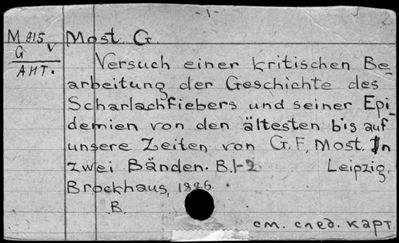 -1-
M 815 Most. G.
G v
АНТ. Versuch einer kritischen Be-
arbeitung der Geschichte des
Scharlachfiebers und seiner Epi-
demien von den ältesten bis auf
unsere Zeiten von G.F. Most. In
zwei Bänden. B.1-2 Leipzig,
Brockhaus, 1826.
B.
см. след. карт.